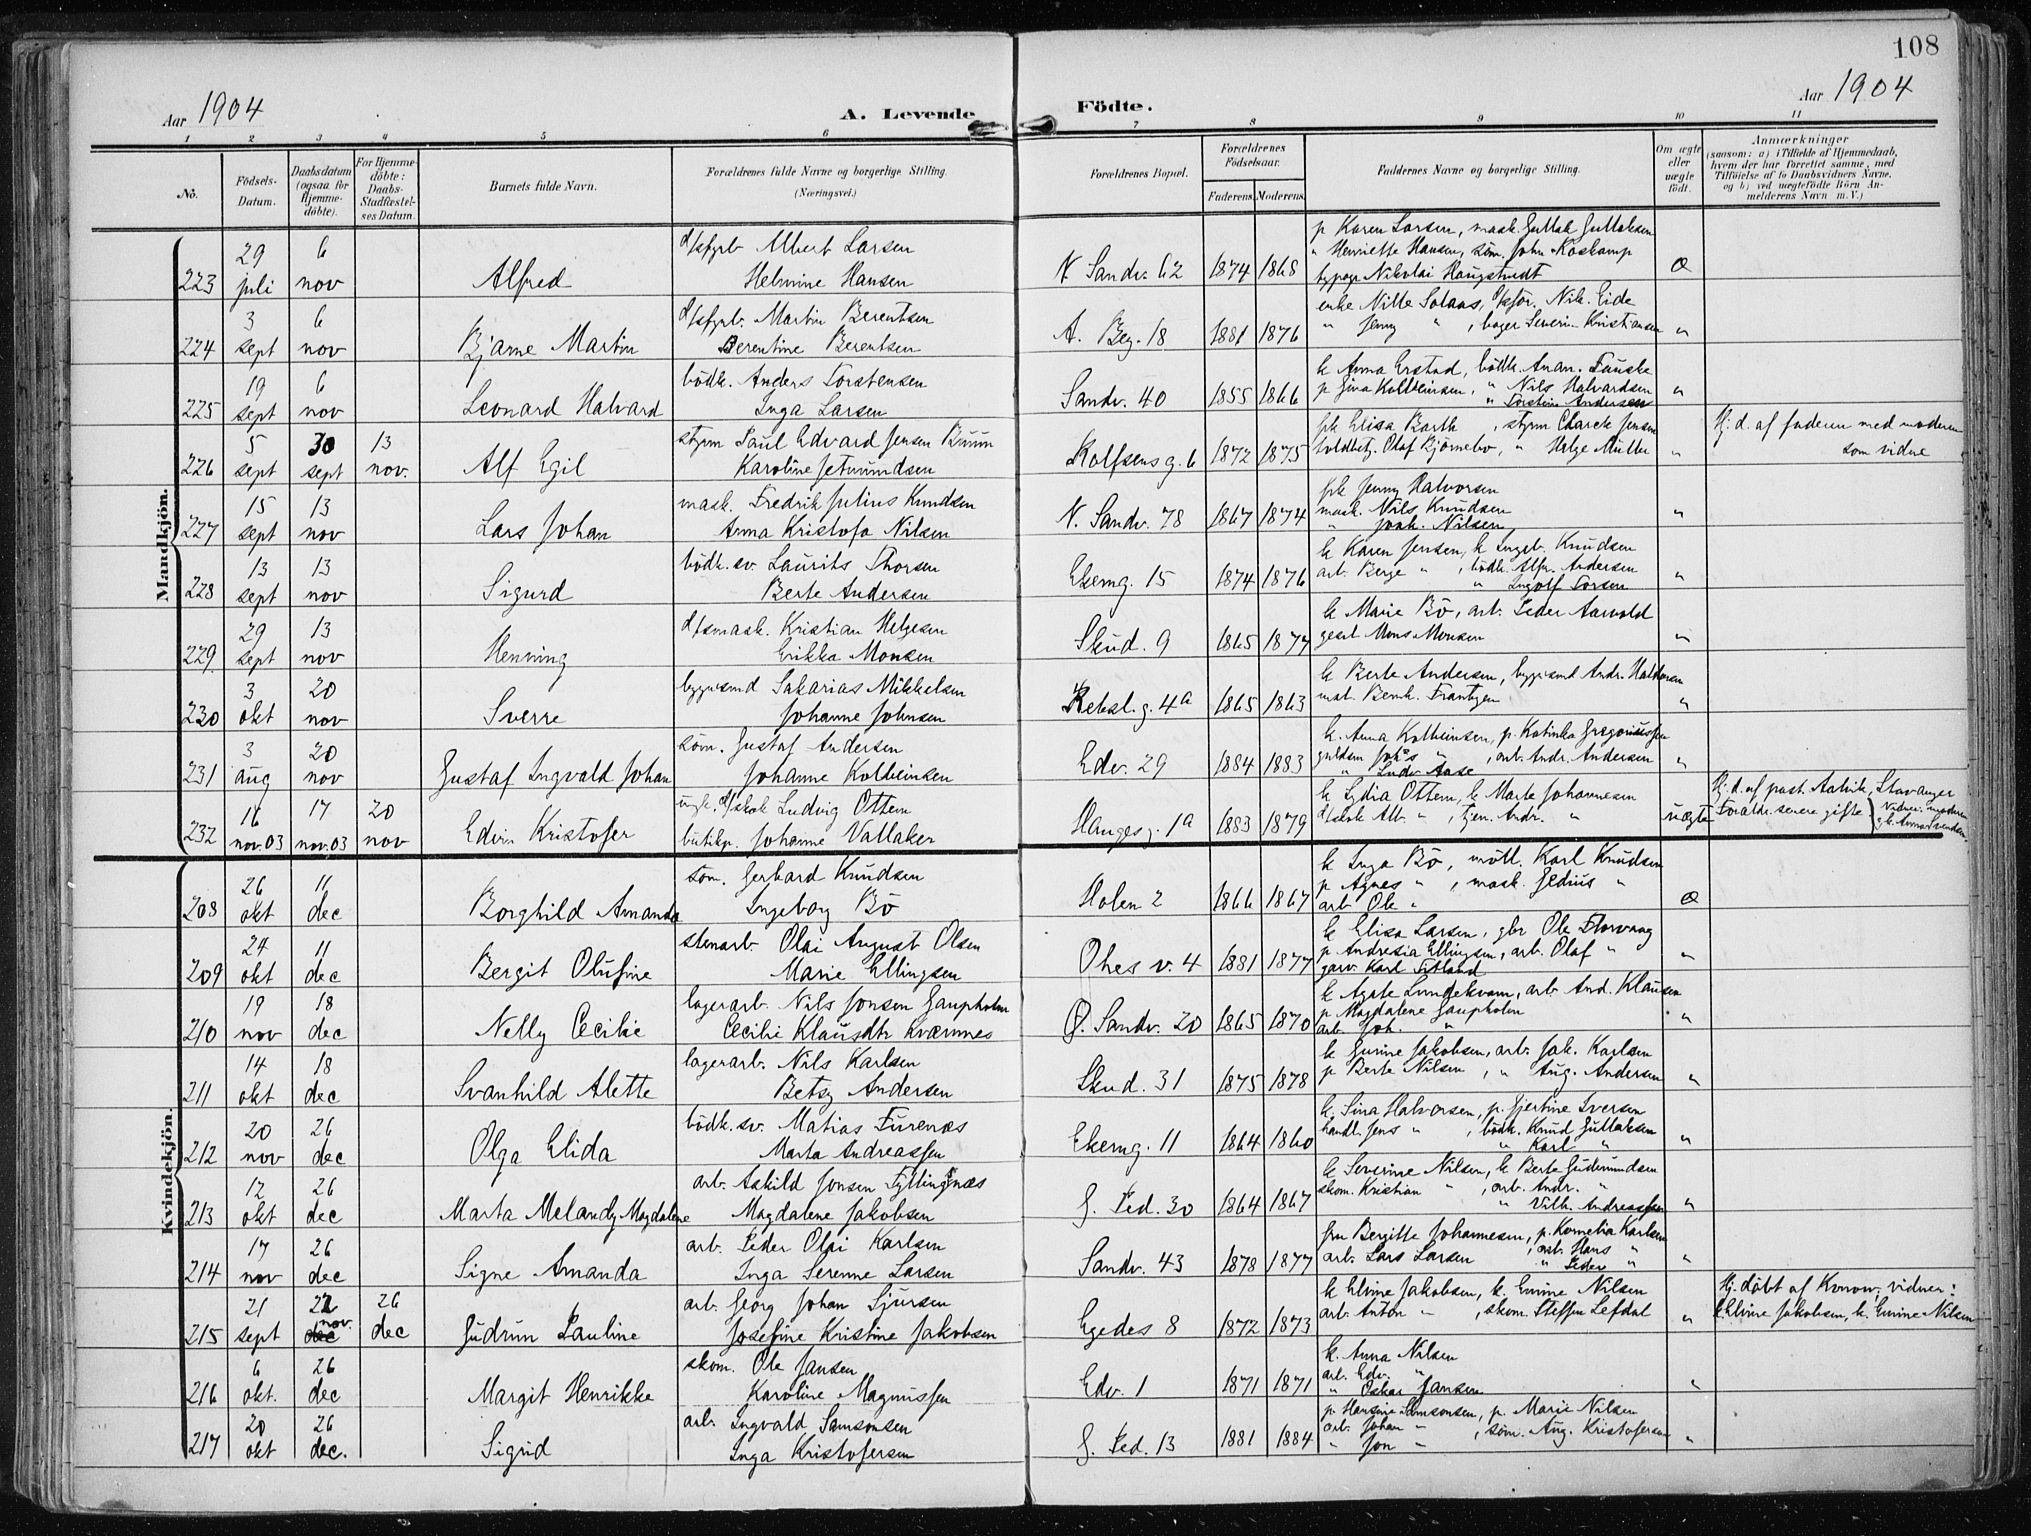 108
Aar 1904
A. Levende Födte.
Aar 1904
1 2 3 4 5 6 7 8 9 10 11
No. Födsels-Datum. Daabsdatum (ogsaa for Hjemme-döbte). For Hjemme-döbte: Daabs-Stadfæstel-ses Datum. Barnets fulde Navn. Forældrenes fulde Navne og borgerlige Stilling. (Næringsvei.) Forældrenes Bopæl. Forældrenes Födselsaar. Faderens. Moderens. Faddernes Navne og borgerlige Stilling. Om ægte eller uægte födt. Anmærkninger (saasom: a) i Tilfælde af Hjemmedaab, hvem der har forrettet samme, med Tilföielse af to Daabsvidners Navne, og b) ved uægtefödte Börn An-melderens Navn m. V.)
Mandkjön.
p Karen Larsen, mask. Guttak Guttaksen
29 6 d/sfyrb Albert Larsen
" Henriette Hansen, söm. John Koskamp
223 juli nov Alfred Helmine Hansen N. Sandv. 62 1874 1868 typogr Nikolai Haugstvedt Æ
enke Nille Solaas, Nik. Eide
3 6 d/sfyrb. Martin Berentsen
" Jenny " , bager Severin Kristiansen
224 sept nov Bjarne Martin Berentine Berentsen A. Beg. 18 1881 1876 "
k Anna Erstad, bödk. Anan. Fauske
19 6 bödk. Anders Torstensen
p Gina Kolbeinsen, " Nils Halvardsen
225 sept nov Leonard Halvard Inga Larsen Sandv. 40 1855 1866 " Torstein Andersen "
5 30 13 styrm Paul Edvard Jensen Buun
frk Elisa Barth , styrm Charck Jensen Hj. d. af faderen med moderen
226 sept sept nov. Alf Egil Karoline Jetmundsen Rolfsens g. 6 1872 1875 toldbetj. Olaf Bjørnebo, " Helge Müller " som vidne
frk Jenny Halvorsen
15 13 mask. Fredrik Julius Knudsen
mask. Nils Knudsen
227 sept nov Lars Johan Anna Kristofa Nilsen N. Sandv. 78 1867 1874 " Joak. Nilsen "
k Karen Jensen, k Ingeb. Knudsen
13 13 bödk. sv. Laurits Thorsen
arb. Berge " , bödk. Alfr. Andersen
228 sept nov Sigurd Berte Andersen Ekemg. 15 1874 1876 " Ingolf Torsen "
k Marie Bö, arb. Peder Aarvold
29 13 d/smask. Kristian Helgesen
229 sept nov Henning Erikka Monsen Skud. 9 1865 1877 gesel Mons Monsen "
k Berte Andersen, byggesmd Andr. Halvorsen
3 20 byggesmd Sakarias Mikkelsen
230 okt nov Sverre Johanne Johnsen Rebsl. g. 4a 1865 1863 mat. Bernh. Frantzen "
k. Anna Kolbeinsen, p. Katinka Gregoriussen
3 20 söm. Gustaf Andersen
guldsm Johs " , arb. Andr. Andersen
231 aug nov Gustaf Ingvald Johan Johanne Kolbeinsen Edv. 29 1884 1883 " Ludv. Aase "
k Lydia Ottem, k Marte Johannesen Hj. d. af past. Aatvik, Stavanger
16 17 20 ugk. d/skok Ludvig Ottem
d/skok Alb. " , tjen. Andr. " Forældr. senere gifte
232 nov. 03 nov. 03 nov Edvin Kristofer butikp. Johanne Vallaker Hauges g. 1a 1883 1879 uægte
Kvindekjön.
k Inga Bö, möll. Karl Knudsen
26 11 söm. Gerhard Knudsen
p Agnes " , mask. Gedius "
208 okt dec Borghild Amanda Ingeborg Bö Holen 2 1866 1867 arb Ole " Æ
k Elisa Larsen, gbr Ole Storvaag
24 11 stenarb Olai August Olsen
p Andresia Ellingsen, arb. Olaf "
209 okt dec Bergit Olufine Marie Ellingsen Ohes v. 4 1881 1877 garv. Karl Titland "
k Agate Lundekvam, arb. And. Klausen
19 18 lagerarb. Nils Jonsen Gaupholm
p Magdalene Gaupholm
210 nov dec Nelly Cecilie Cecilie Klausdtr Kværnnes Ö. Sandv. 20 1865 1870 arb Joh. " "
k Gurine Jakobsen, arb. Jak. Karlsen
14 18 lagerarb. Nils Karlsen
p Berte Nilsen, " Aug. Andersen
211 okt dec Svanhild Alette Betsy Andersen Skud. 31 1875 1878 "
k. Sina Halvorsen, p. Gjertine Iversen
20 26 bödk. sv. Matias Furenæs
handl Jens " , bödk. Knud Guttaksen
212 nov dec Olga Elida Marta Andreassen Ekemg. 11 1864 1860 " Karl " "
k Severine Nilsen, k Berte Gudmundsen
12 26 arb. Askild Jonsen Fyllingsnæs
skom. Kristian " , arb. Andr. "
213 okt dec Marta Melandy Magdalene Magdalene Jakobsen G. Ped. 30 1864 1867 " Vilh. Andreassen "
fru Bergitte Johannesen, p. Kornelia Karlsen
17 26 arb. Peder Olai Karlsen
arb. Lars Larsen , arb. Hans "
214 nov dec Signe Amanda Inga Serenne Larsen Sandv. 43 1878 1877 " Peder " "
k Elvine Jakobsen, k. Emine Nilsen Hj. döbt af Konow, vidner:
21 22 26 arb. Georg Johan Sjursen
arb. Anton " , skom. Steffen Lefdal k Elvine Jakobsen, k. Emine Nilsen
215 sept nov. dec Gudrun Pauline Josefine Kristine Jakobsen Egedes 8 1872 1873 "
k. Anna Nilsen
6 26 skom. Ole Jansen
arb. Edv. "
216 okt. dec Margit Henrikke Karoline Magnussen Edv. 1 1871 1871 " Oskar Jansen "
p Hansine Samsonsen, p. Marie Nilsen
20 26 arb. Ingvald Samsonsen
arb. Johan " , söm. Aug. Kristofersen
217 okt dec. Sigrid Inga Kristofersen G. Ped. 13 1881 1884 " Jon " "